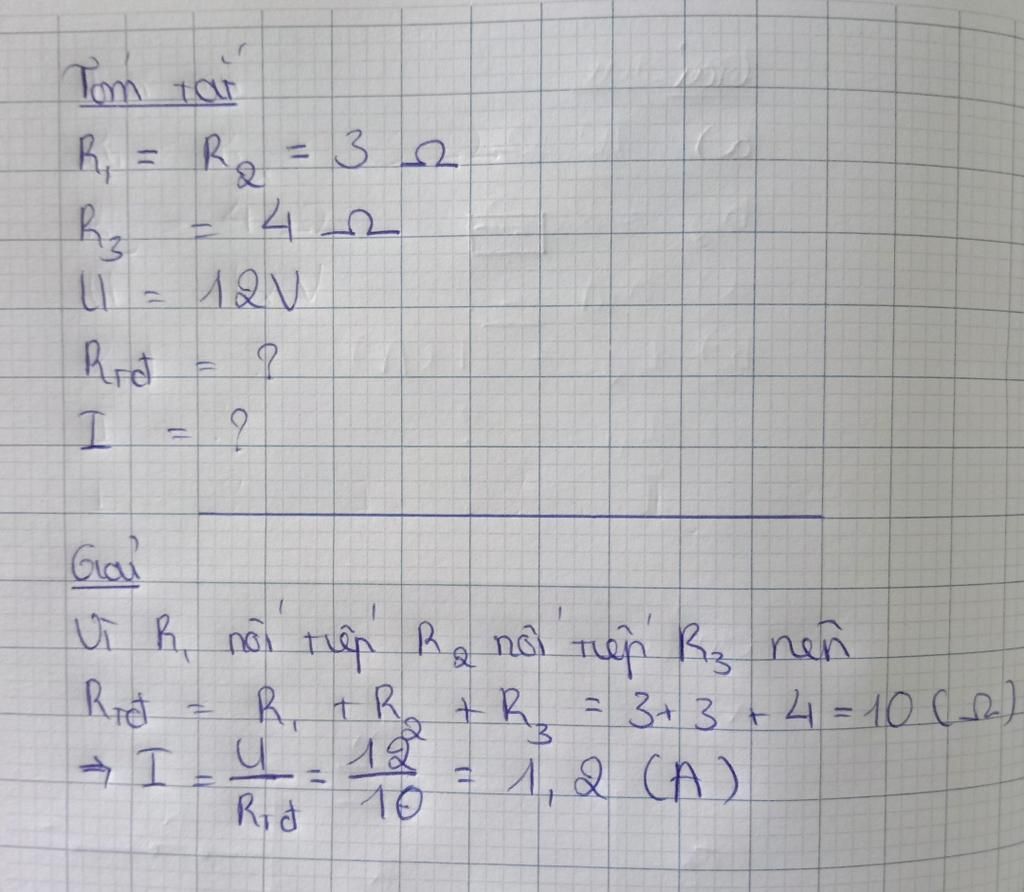 Tóm tắt
R₁ = R₂ = 3 Ω
R₃ = 4 Ω
U = 12V
Rtđ = ?
I = ?
Giải
Vì R₁ nối tiếp R₂ nối tiếp R₃ nên
Rtđ = R₁ + R₂ + R₃ = 3 + 3 + 4 = 10 (Ω)
→ I = U/Rtđ = 12/10 = 1,2 (A)